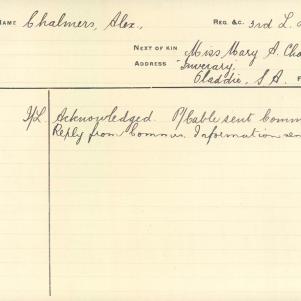 NAME Chalmers, Alex., REG. &C. 3rd L.
NEXT OF KIN Miss Mary A. Cha
ADDRESS "Inverary,
Gladdie, S.A. F
I/L Acknowledged. P/Cable sent Comm
Reply from Commrs. Information sen